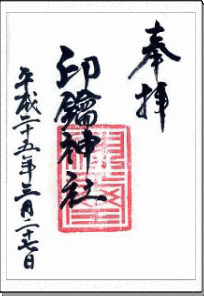 奉拝
印鑰神社
平成二十五年三月二十七日